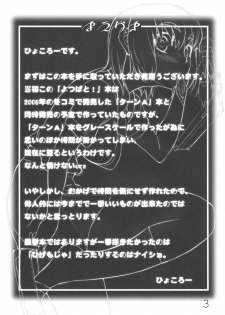 まえがき
ひょころーです。
まずはこの本を手に取っていただき有難うございます。
表題この「よつばと!」本は
2006年の冬コミで発売した「ターンA」と
同時発売の予定で作っていたものですが、
「ターンA」本をグレースケールで作ったが為に
思いのほか時間が掛かってしまい、
現在に至るというわけです。
なんと情けないorz
いやしかし、おかげで時間を気にせず作れたので、
個人的には今までで一番いいものが出来たのでは
ないかと思っとります。
ひょころー
3